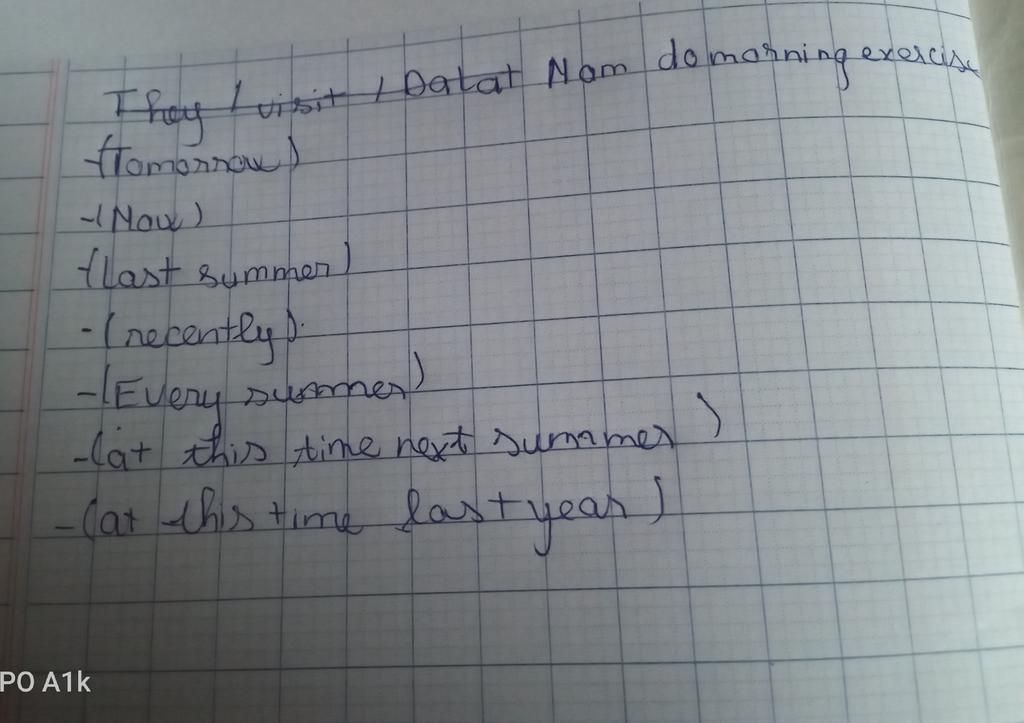 They / visit / Dalat Nam do morning exercise
-(Tomorrow)
-(Now)
-(last summer)
-(recently).
-(Every summer)
-(at this time next summer)
-(at this time last year)
PO A1k